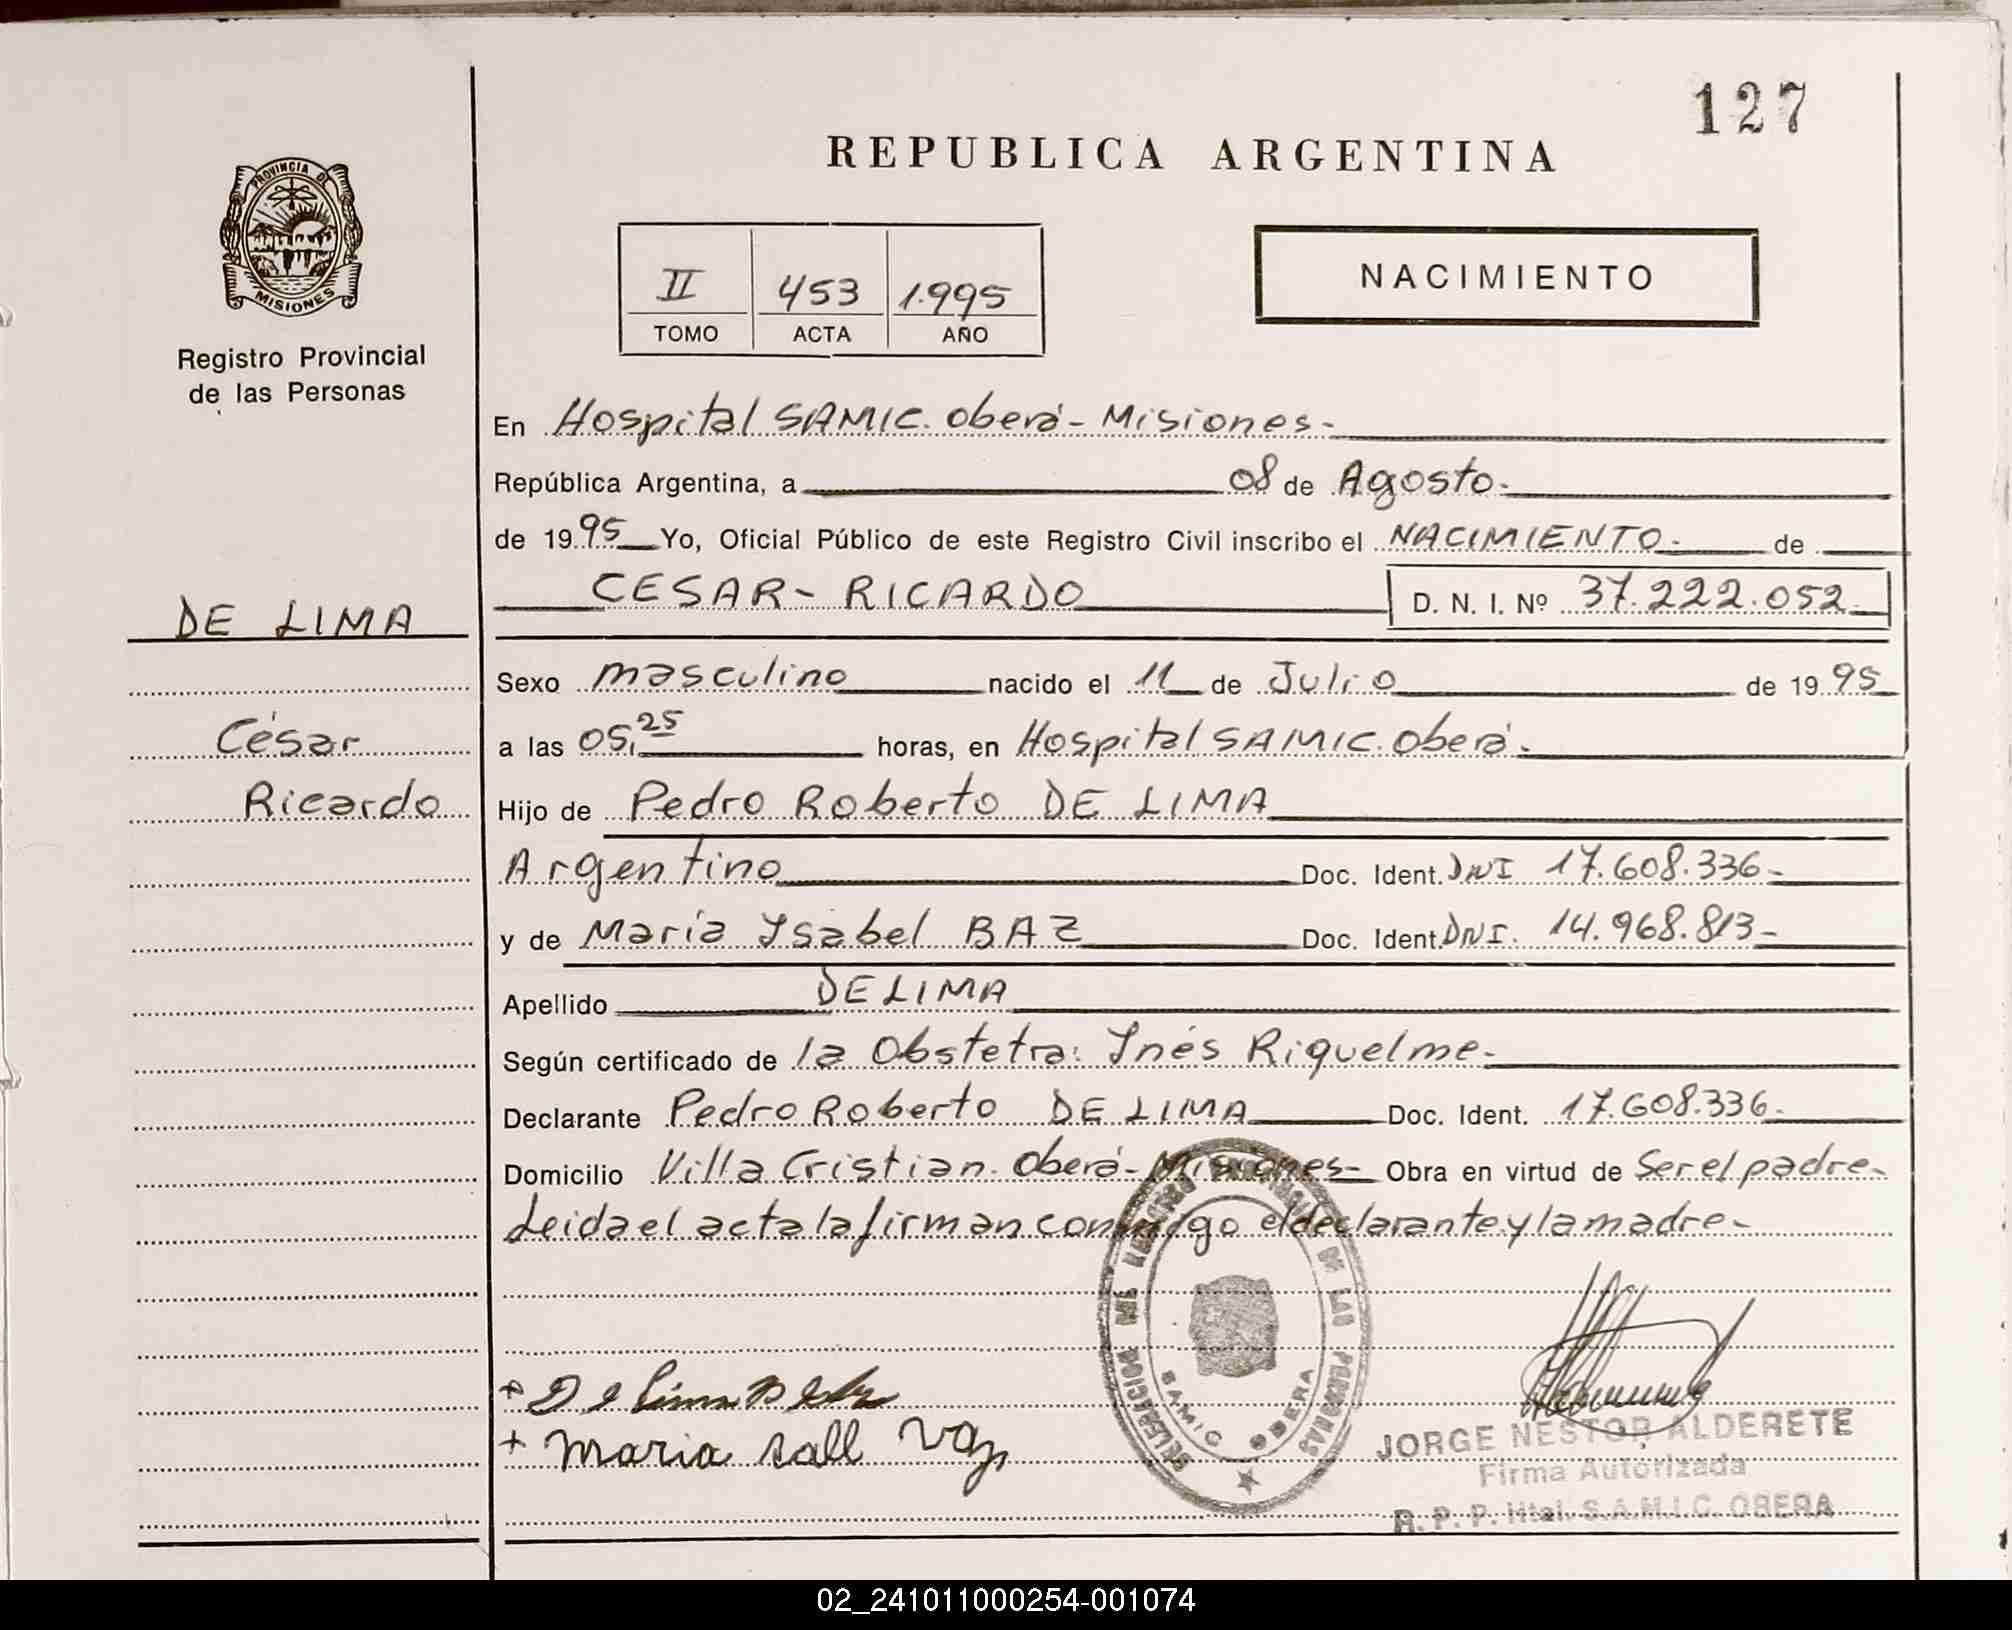 127
REPUBLICA ARGENTINA
PROVINCIA DE
MISIONES
Registro Provincial
de las Personas
II 453 1.995
TOMO ACTA AÑO
NACIMIENTO
En Hospital SAMIC. Oberá - Misiones -
República Argentina, a 08 de Agosto -
de 1995 Yo, Oficial Público de este Registro Civil inscribo el NACIMIENTO - de
CESAR - RICARDO D. N. I. Nº 37.222.052 -
DE LIMA
Sexo masculino nacido el 11 de Julio de 1995
César
a las 05,25 horas, en Hospital SAMIC. Oberá -
Ricardo
Hijo de Pedro Roberto DE LIMA
Argentino Doc. Ident. DNI 17.608.336 -
y de María Ysabel BAZ Doc. Ident DNI. 14.968.813 -
Apellido DE LIMA
Según certificado de la Obstetra: Ynés Riquelme -
Declarante Pedro Roberto DE LIMA Doc. Ident. 17.608.336 -
Domicilio Villa Cristian. Oberá - Misiones - Obra en virtud de Ser el padre -
Leida el acta la firman conmigo el declarante y la madre -
+ De Lima
+ maria
DE LAS PERSONAS
SAMIC OBERA
JORGE NESTOR ALDERETE
Firma Autorizada
R. P. P. Htal. S.A.M.I.C. OBERA
02_241011000254-001074